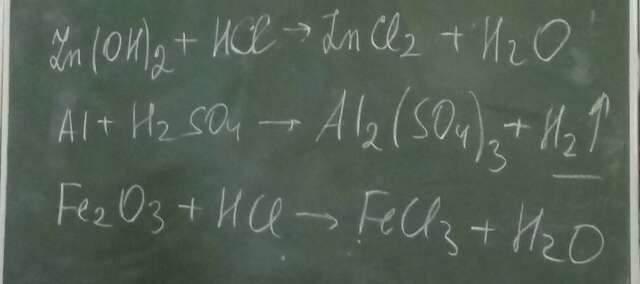 Zn(OH)₂ + HCl → ZnCl₂ + H₂O
Al + H₂SO₄ → Al₂(SO₄)₃ + H₂↑
Fe₂O₃ + HCl → FeCl₃ + H₂O